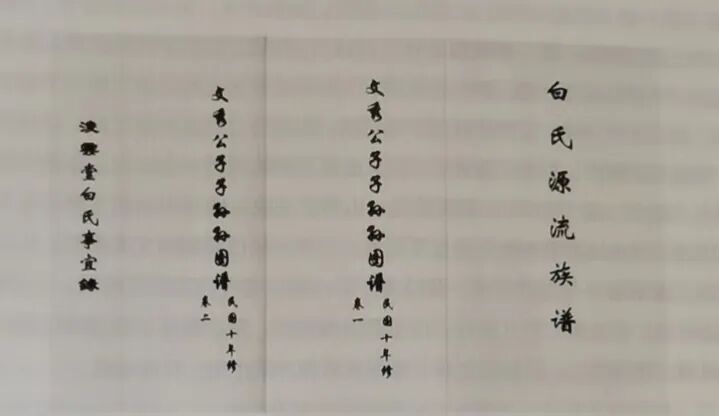 白氏源流族谱
文秀公子子孙孙图谱
民国十年修
卷一
文秀公子子孙孙图谱
民国十年修
卷二
堂白氏事宜錄